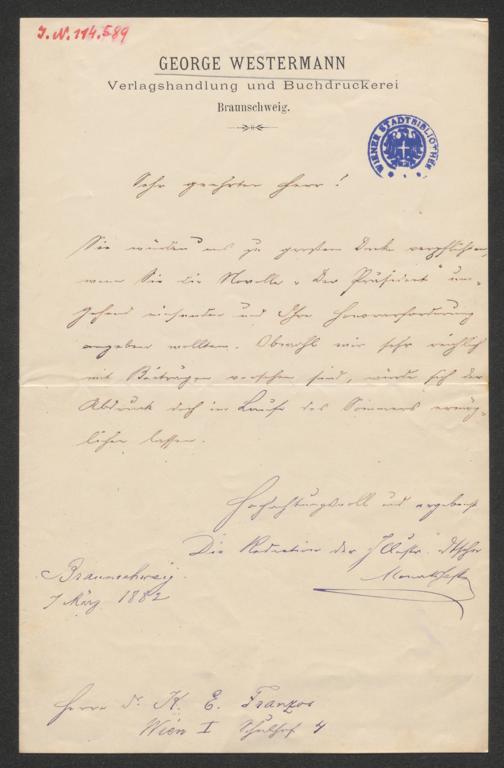 J.N. 114.589
GEORGE WESTERMANN
Verlagshandlung und Buchdruckerei
Braunschweig.
WIENER STADTBIBLIOTHEK
Sehr geehrter Herr!
Sie würden uns zu großem Danke verpflichten,
wenn Sie die Novelle „Der Präsident" um-
gehend einsenden und Ihre Honorarforderung
angeben wollten. Obwohl wir sehr reichlich
mit Beiträgen versehen sind, würde sich der
Abdruck doch im Laufe des Sommers ermög-
lichen lassen.
Hochachtungsvoll und ergebenst
Die Redaction der Illustr. dtschen
Monatshefte
Braunschweig.
7 März 1882
Herrn Dr. K. E. Franzos
Wien I Schulhof 4